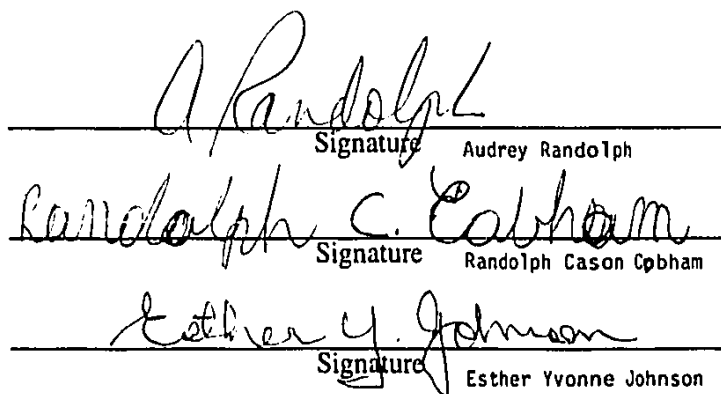 A Randolph
Signature Audrey Randolph
Randolph C. Cobham
Signature Randolph Cason Cobham
Esther Y. Johnson
Signature Esther Yvonne Johnson